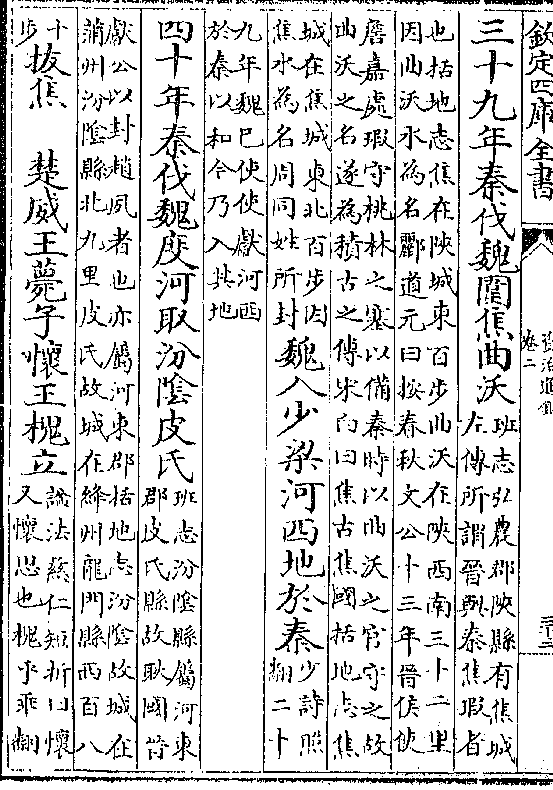 欽定四庫全書
資治通鑑
卷二
三十九年秦伐魏圍焦曲沃
班志弘農郡陜縣有焦城
左傳所謂晉與秦焦瑕者
也括地志焦在陜城東百步曲沃在陜西南三十二里
因曲沃水為名酈道元曰按春秋文公十三年晉侯使
詹嘉處瑕守桃林之塞以備秦時以曲沃之官守之故
曲沃之名遂為積古之傳宋白曰焦古焦國括地志焦
城在焦城東北百步因
焦水為名周同姓所封
魏入少梁河西地於秦
少詩照
翻二十
九年魏已使使獻河西
於秦以和今乃入其地
四十年秦伐魏度河取汾陰皮氏
班志汾陰縣屬河東
郡皮氏縣故耿國晉
獻公以封趙夙者也亦屬河東郡括地志汾陰故城在
蒲州汾陰縣北九里皮氏故城在絳州龍門縣西百八
十
步
拔焦　楚威王薨子懷王槐立
諡法慈仁短折曰懷
又懷思也槐乎乖翻